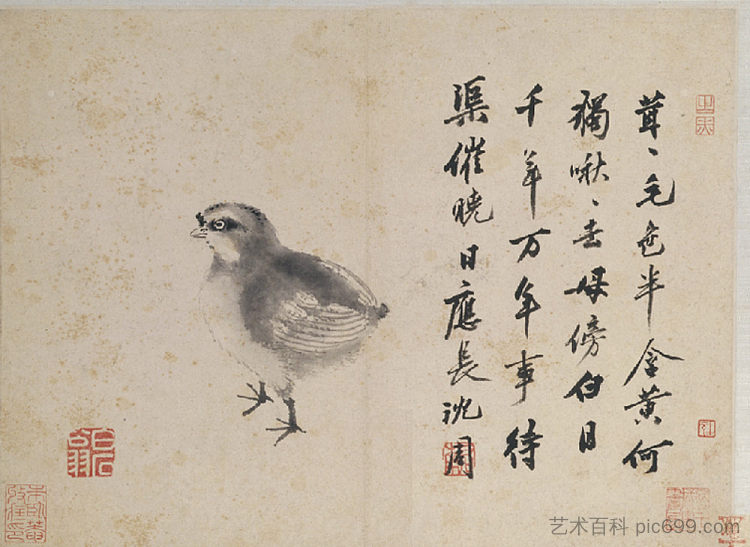 茸〻毛色半含黃何
獨啾〻去母傍白日
千年万年事待
渠催曉日應長沈周
艺术百科 pic699.com